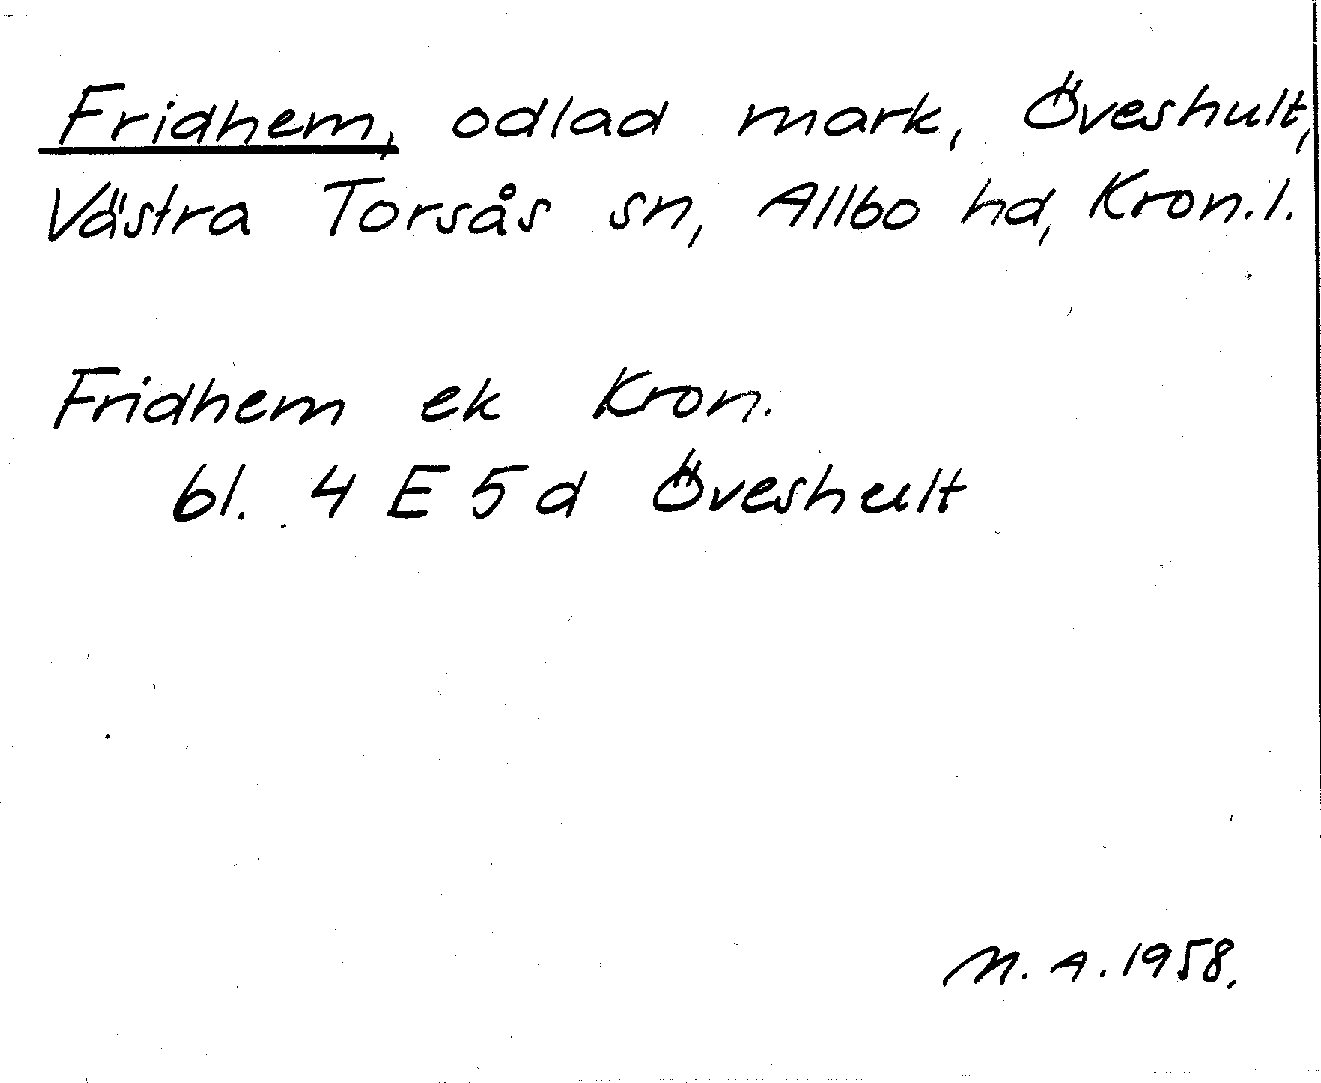 Fridhem, odlad mark, Öveshult,
Västra Torsås sn, Allbo hd, Kron.l.
Fridhem ek Kron.
bl. 4 E 5 d Öveshult
M. A. 1958.